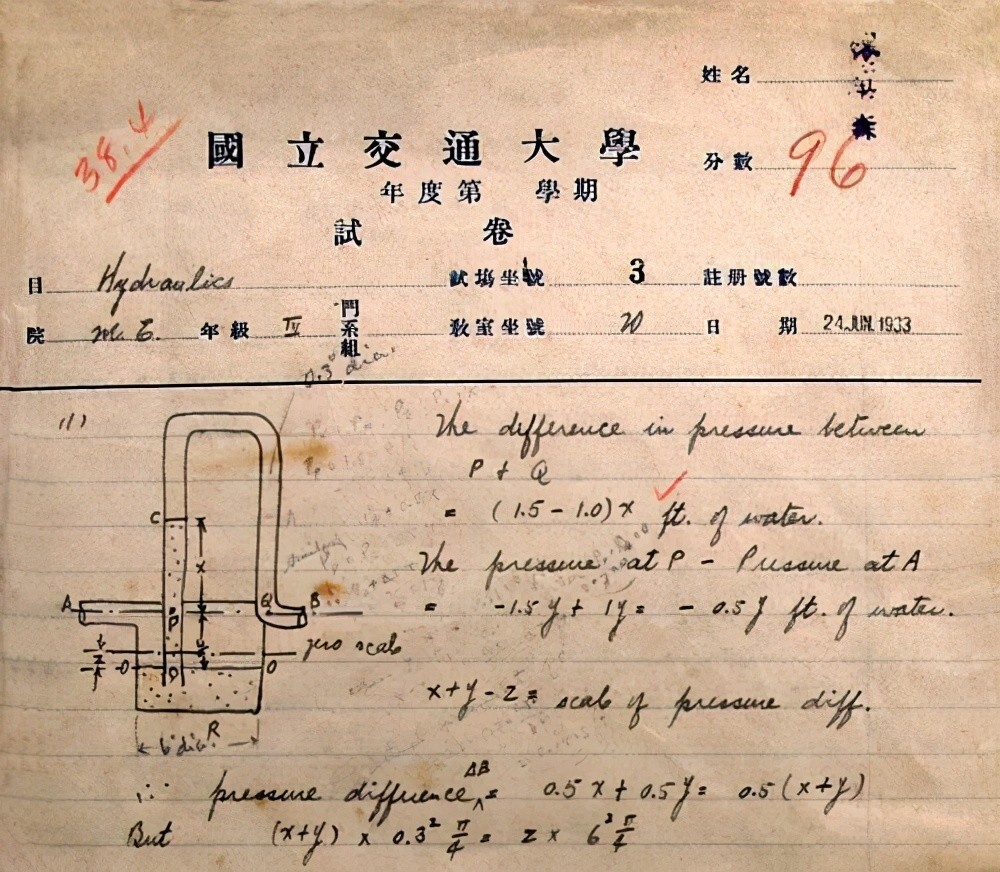 姓名
38.4
國立交通大學
分數 96
年度第 學期
試卷
目 Hydraulics 試場坐號 3 註册號數
院 M. E. 年級 IV 門系組 教室坐號 20 日期 24 JUN. 1933
0.3" dia.
(1)
The difference in pressure between
P + Q
= (1.5 - 1.0) x ft. of water.
C
x
The pressure at P - Pressure at A
A P Q B
= -1.5 y + 1y = - 0.5 y ft. of water.
y
zero scale
z
O O
x + y - z = scale of pressure diff.
R
6" dia.
∴ pressure difference AB = 0.5 x + 0.5 y = 0.5 (x+y)
But (x+y) x 0.3² π/4 = z x 6² π/4